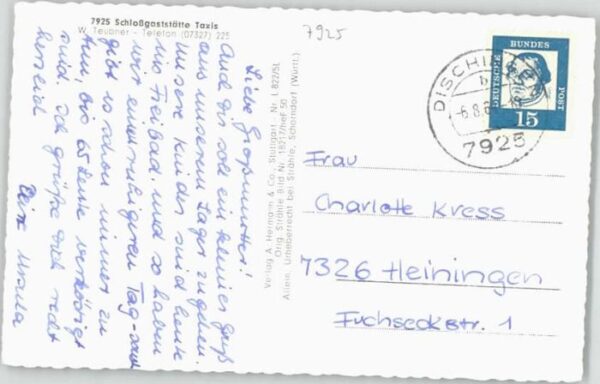 7925 Schloßgaststätte Taxis
W. Teubner - Telefon (07327) 225
7925
Liebe Großmutter!
Auch dir soll ein kleiner Gruß
aus unserem Lager zugehen.
Unsere Kinder sind heute
im Freibad und so haben
wir einen ruhigeren Tag - sonst
gibt es schon immer zu
tun, bis 65 Leute verköstigt
sind. Ich grüße Dich recht
herzlich
Deine Ursula
Verlag A. Hermann & Co., Stuttgart - Nr. L 822/5L
Orig. Strähle Bild Nr. 18217/hef 50
Allein. Urheberrecht bei Strähle, Schorndorf (Württ.)
DISCHINGEN
b
-6.8.6
7925
DEUTSCHE BUNDES POST
15
Frau
Charlotte Kress
7326 Heiningen
Fuchseckstr. 1